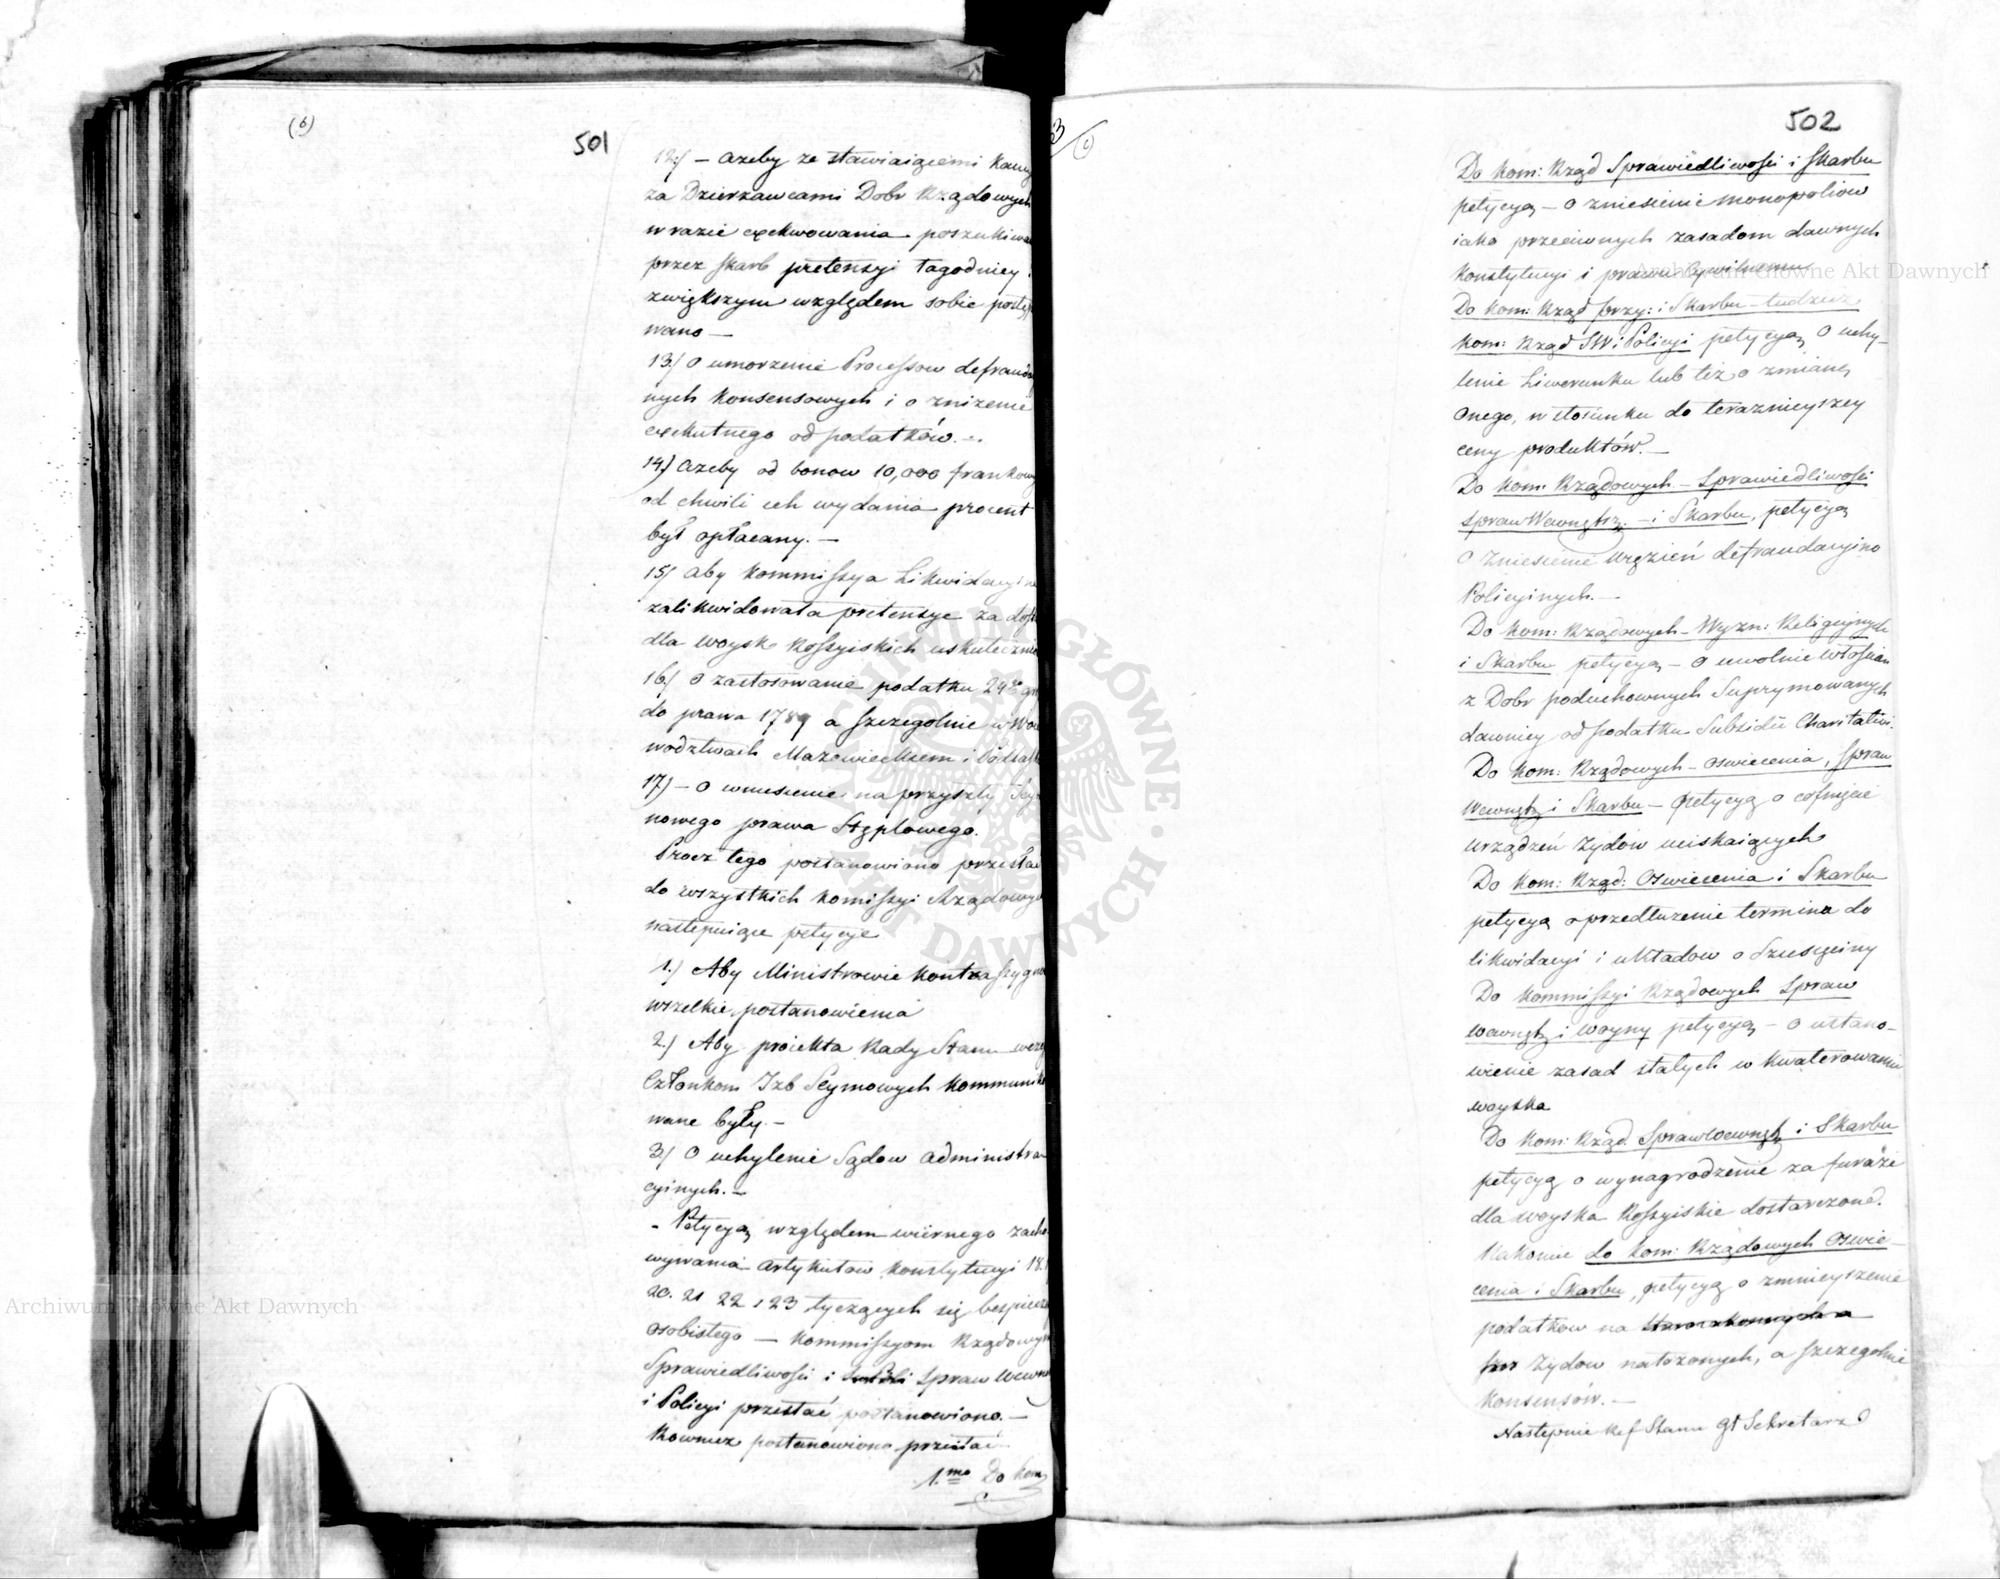 (6)
501
12) – ażeby ze stawiaiącemi
za Dzierzawcami Dobr Rządowych
w razie exekwowania
przez Skarb pretensyi łagodniey
zwiększym względem sobie
wano –
13) O umorzenie Processow
nych konsensowych i o zniżenie
exekutnego od podatków. –
14) ażeby od bonow 10,000
od chwili ich wydania procent
był opłacany. –
15) aby Kommissya
zalikwidowała pretensye za
dla woysk Rossyiskich
16) O zastosowanie podatku 24go
do prawa 1789 a szczegolnie w
wodztwach Mazowieckiem i
17) – O wniesienie na przyszły
nowego prawa Stęplowego.
Procz tego postanowiono przesłać
do wszystkich Komissyi Rządowych
następuiące petycye
1.) Aby Ministrowie
wszelkie postanowienia
2.) Aby proiekta Rady Stanu
Członkom Izb Seymowych
wane były. –
3) O uchylenie Sądow administra
cyinych. –
– Petycyą względem wiernego
wywania artykułow Konstytucyi
20. 21 22 i 23 tyczących się
osobistego – Kommissyom
Sprawiedliwości i Spraw
i Policyi przesłać postanowiono. –
Rownież postanowiono przesłać
1.mo Do Kom
502
Do Kom: Rząd Sprawiedliwości i Skarbu
petycyą – O zniesienie monopoliow
iako przeciwnych zasadom dawnych
Konstytucyi i prawu Cywilnemu
Do Kom: Rząd przy: i Skarbu – tudzież
Kom: Rząd SW i Policyi petycyą O uchy-
lenie Liwerunku lub też o zmianę
onego, w stosunku do teraznieyszey
ceny produktów. –
Do Kom: Rządowych – Sprawiedliwości
Spraw Wewnętrz: – i Skarbu, petycyą
O zniesienie więzień defraudacyino
Policyinych. –
Do Kom: Rządowych – Wyzn: Religiynych
i Skarbu petycyą – O uwolnie Włościan
z Dobr poduchownych Suprymowanych
dawniey od podatku Subsidii Charitativi.
Do Kom: Rządowych – Oswiecenia, Spraw
Wewnętz i Skarbu – petycyą o cofnięcie
urządzeń Zydow uciskaiących
Do Kom: Rząd: Oswiecenia i Skarbu
petycyą o przedłużenie termina do
likwidacyi i układow o dziesięciny
Do Kommissyi Rządowych Spraw
Wewnętz i Woyny petycyą – O ustano-
wienie zasad stałych w kwaterowaniu
woyska
Do Kom: Rząd. Spraw Wewnętz i Skarbu
petycyą o wynagrodzenie za furaże
dla woyska Rossyiskie dostarczone.
Nakonie do Kom: Rządowych Oswie-
cenia i Skarbu, petycyą o zmnieyszenie
podatkow na
Zydow nałożonych, a szczegolnie
Konsensów. –
Następnie Ref Stanu Gł Sekretarz
Archiwum Główne Akt Dawnych
Archiwum Główne Akt Dawnych
ARCHIWUM GŁÓWNE AKT DAWNYCH